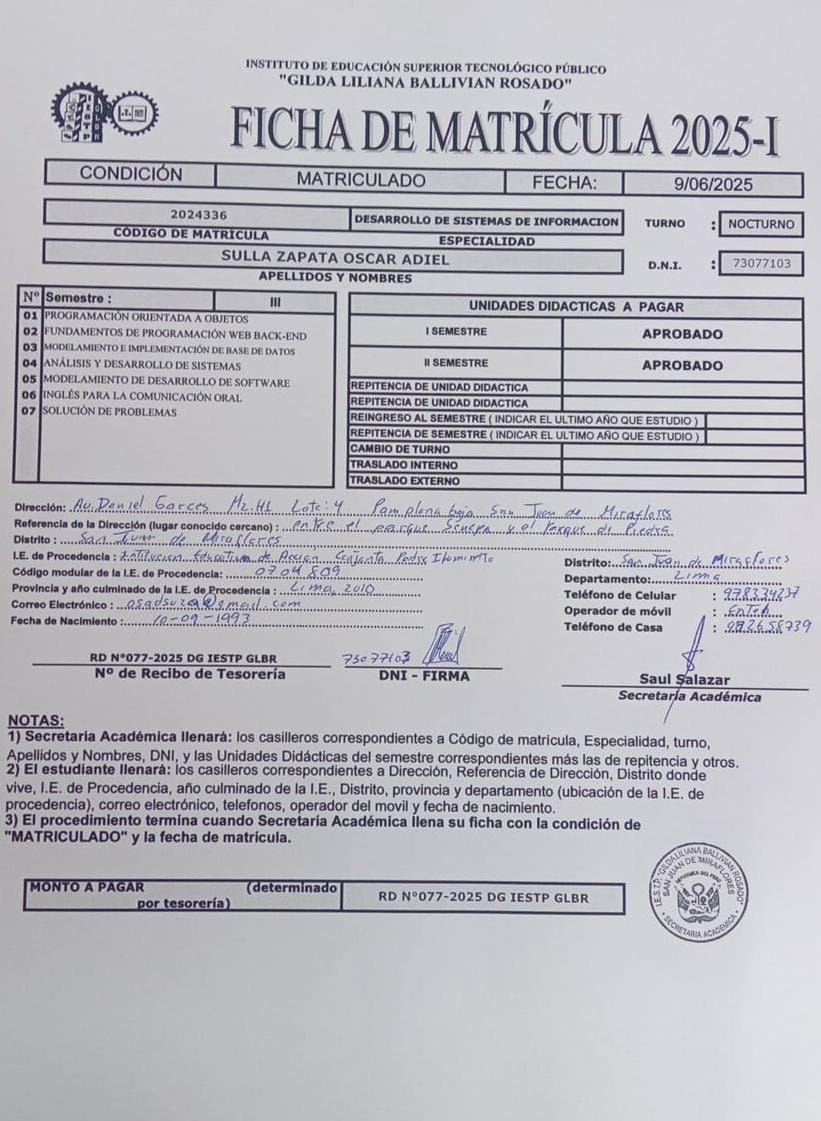 INSTITUTO DE EDUCACIÓN SUPERIOR TECNOLÓGICO PÚBLICO
"GILDA LILIANA BALLIVIAN ROSADO"
FICHA DE MATRÍCULA 2025-I
CONDICIÓN MATRICULADO FECHA: 9/06/2025
2024336 DESARROLLO DE SISTEMAS DE INFORMACION TURNO : NOCTURNO
CÓDIGO DE MATRÍCULA ESPECIALIDAD
SULLA ZAPATA OSCAR ADIEL D.N.I. : 73077103
APELLIDOS Y NOMBRES
Nº Semestre : III
01 PROGRAMACIÓN ORIENTADA A OBJETOS
02 FUNDAMENTOS DE PROGRAMACIÓN WEB BACK-END
03 MODELAMIENTO E IMPLEMENTACIÓN DE BASE DE DATOS
04 ANÁLISIS Y DESARROLLO DE SISTEMAS
05 MODELAMIENTO DE DESARROLLO DE SOFTWARE
06 INGLÉS PARA LA COMUNICACIÓN ORAL
07 SOLUCIÓN DE PROBLEMAS
UNIDADES DIDACTICAS A PAGAR
I SEMESTRE APROBADO
II SEMESTRE APROBADO
REPITENCIA DE UNIDAD DIDACTICA
REPITENCIA DE UNIDAD DIDACTICA
REINGRESO AL SEMESTRE ( INDICAR EL ULTIMO AÑO QUE ESTUDIO )
REPITENCIA DE SEMESTRE ( INDICAR EL ULTIMO AÑO QUE ESTUDIO )
CAMBIO DE TURNO
TRASLADO INTERNO
TRASLADO EXTERNO
Dirección: Av. Daniel Garces Mz. H1 Lote: 4 Pamplona baja San Juan de Miraflores
Referencia de la Dirección (lugar conocido cercano) : entre el parque y el Parque de Piedra
Distrito : San Juan de Miraflores
I.E. de Procedencia : Educativa de Accion Conjunta Padre
Código modular de la I.E. de Procedencia: 0704809
Provincia y año culminado de la I.E. de Procedencia : Lima, 2010
Correo Electrónico : @gmail.com
Fecha de Nacimiento : 10-09-1993
Distrito: San Juan de Miraflores
Departamento: Lima
Teléfono de Celular : 978334237
Operador de móvil : Entel
Teléfono de Casa :
RD N°077-2025 DG IESTP GLBR
Nº de Recibo de Tesorería
73077103
DNI - FIRMA
Saul Salazar
Secretaría Académica
NOTAS:
1) Secretaria Académica llenará: los casilleros correspondientes a Código de matricula, Especialidad, turno,
Apellidos y Nombres, DNI, y las Unidades Didácticas del semestre correspondientes más las de repitencia y otros.
2) El estudiante llenará: los casilleros correspondientes a Dirección, Referencia de Dirección, Distrito donde
vive, I.E. de Procedencia, año culminado de la I.E., Distrito, provincia y departamento (ubicación de la I.E. de
procedencia), correo electrónico, telefonos, operador del movil y fecha de nacimiento.
3) El procedimiento termina cuando Secretaría Académica llena su ficha con la condición de
"MATRICULADO" y la fecha de matrícula.
MONTO A PAGAR (determinado
por tesorería) RD N°077-2025 DG IESTP GLBR
I.E.S.T.P. "GILDA LILIANA BALLIVIAN ROSADO"
SAN JUAN DE MIRAFLORES
REPÚBLICA DEL PERÚ
SECRETARIA ACADEMICA